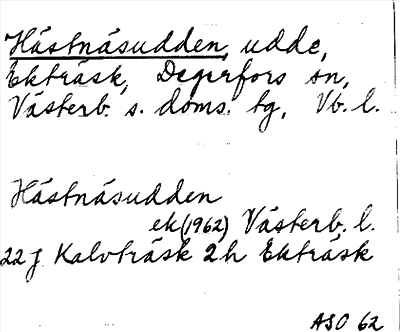 Hästnäsudden, udde,
Ekträsk, Degerfors sn,
Västerb. s. doms. tg, Vb. l.
Hästnäsudden
ek (1962) Västerb. l.
22 J Kalvträsk 2h Ekträsk
ASO 62